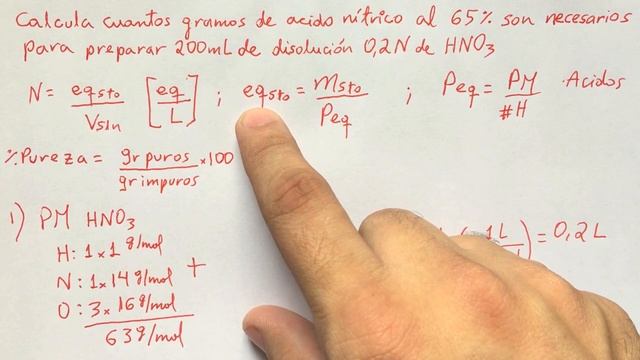 Calcula cuantos gramos de acido nítrico al 65% son necesarios
para preparar 200mL de disolución 0,2N de HNO3
N = eqsto/Vsln [eq/L] ; eqsto = msto/Peq ; Peq = PM/#H · Acidos
% Pureza = gr puros/gr impuros × 100
1) PM HNO3
H: 1 × 1 g/mol
N: 1 × 14 g/mol +
O: 3 × 16 g/mol
63 g/mol
1L ) = 0,2 L